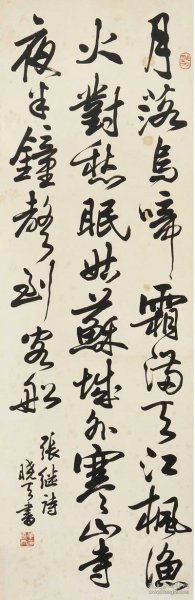 月落烏啼霜滿天江楓漁
火對愁眠姑蘇城外寒山寺
夜半鐘聲到客船
張继诗
晓天書